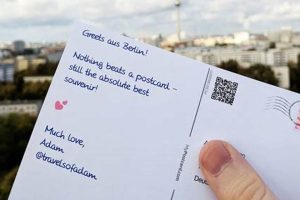 Greets aus Berlin!
Nothing beats a postcard –
still the absolute best
souvenir!
Much love,
Adam
@travelsofadam